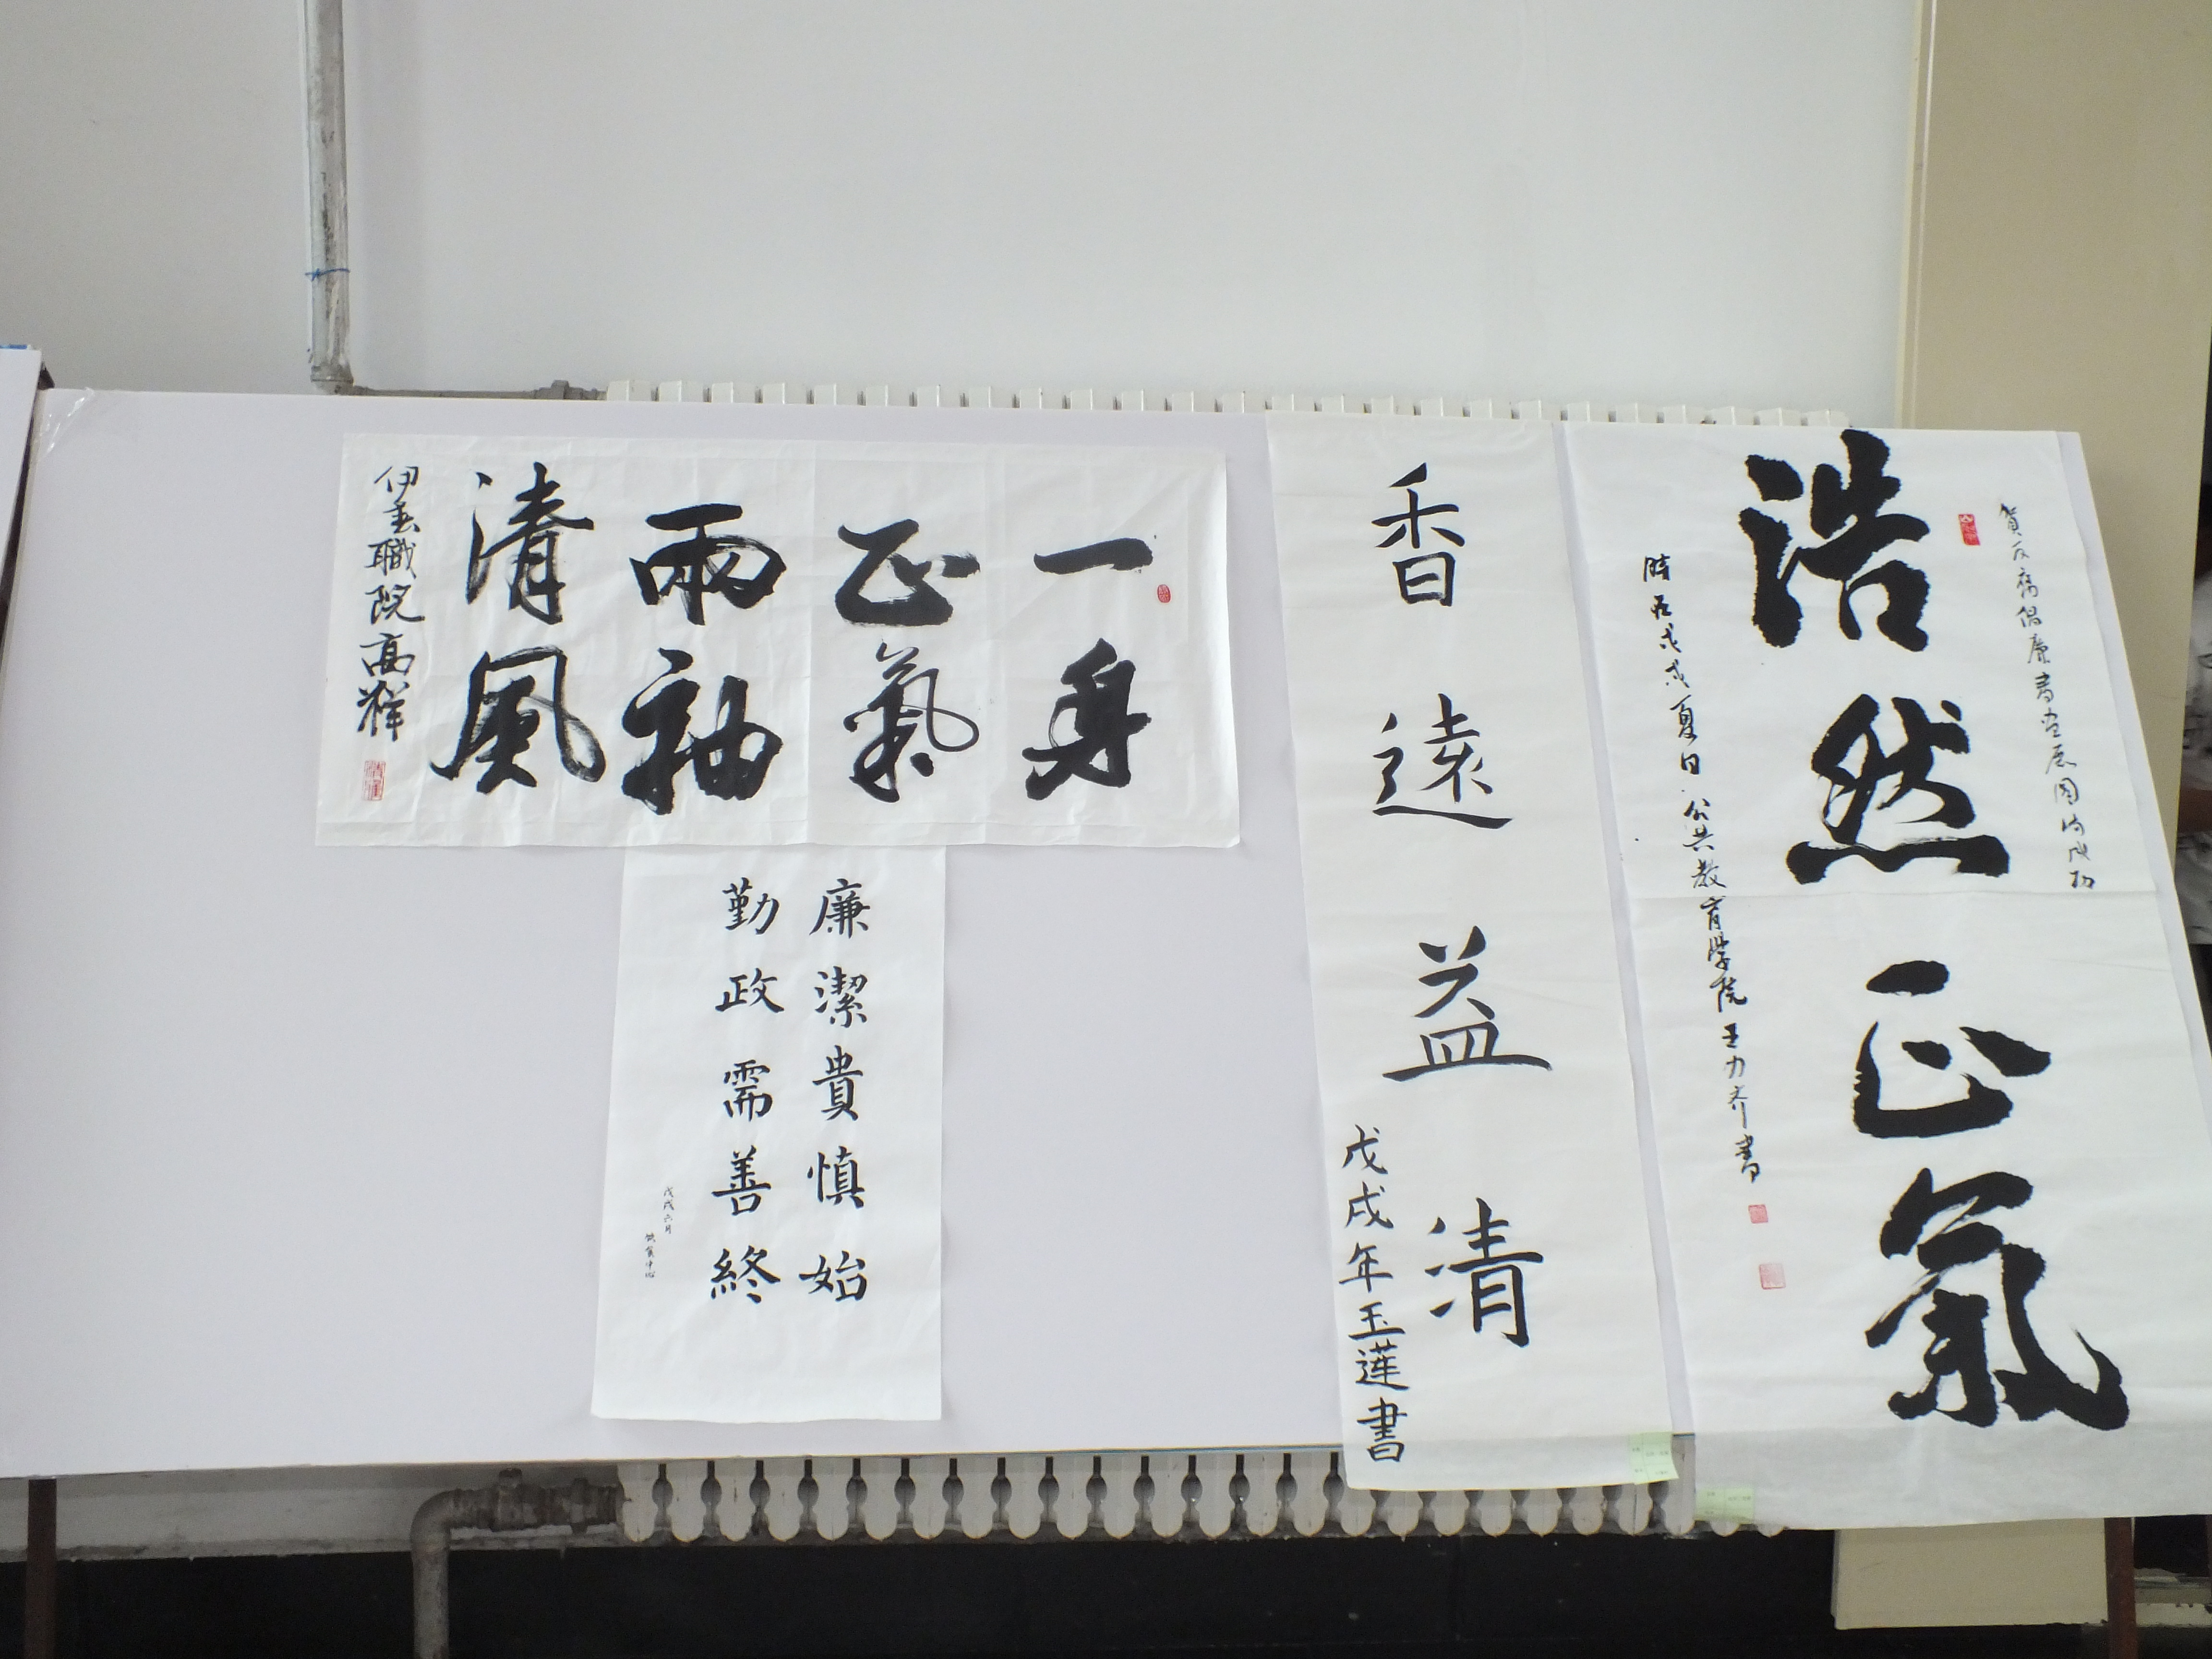 賀反腐倡廉書畫展圓滿成功
浩然正氣
時在戊戌夏日公共教育學院王力齐書
香遠益清
戊戌年玉蓮書
一身
正氣
兩袖
清風
伊春職院高輝
廉潔貴慎始
勤政需善終
戊戌六月